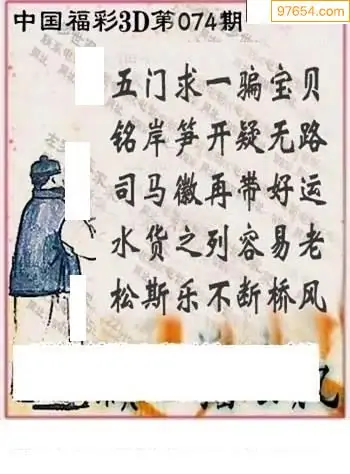 97654.com
中国福彩3D第074期
五门求一骗宝贝
铭岸笋开疑无路
司马徽再带好运
水货之列容易老
松斯乐不断桥风